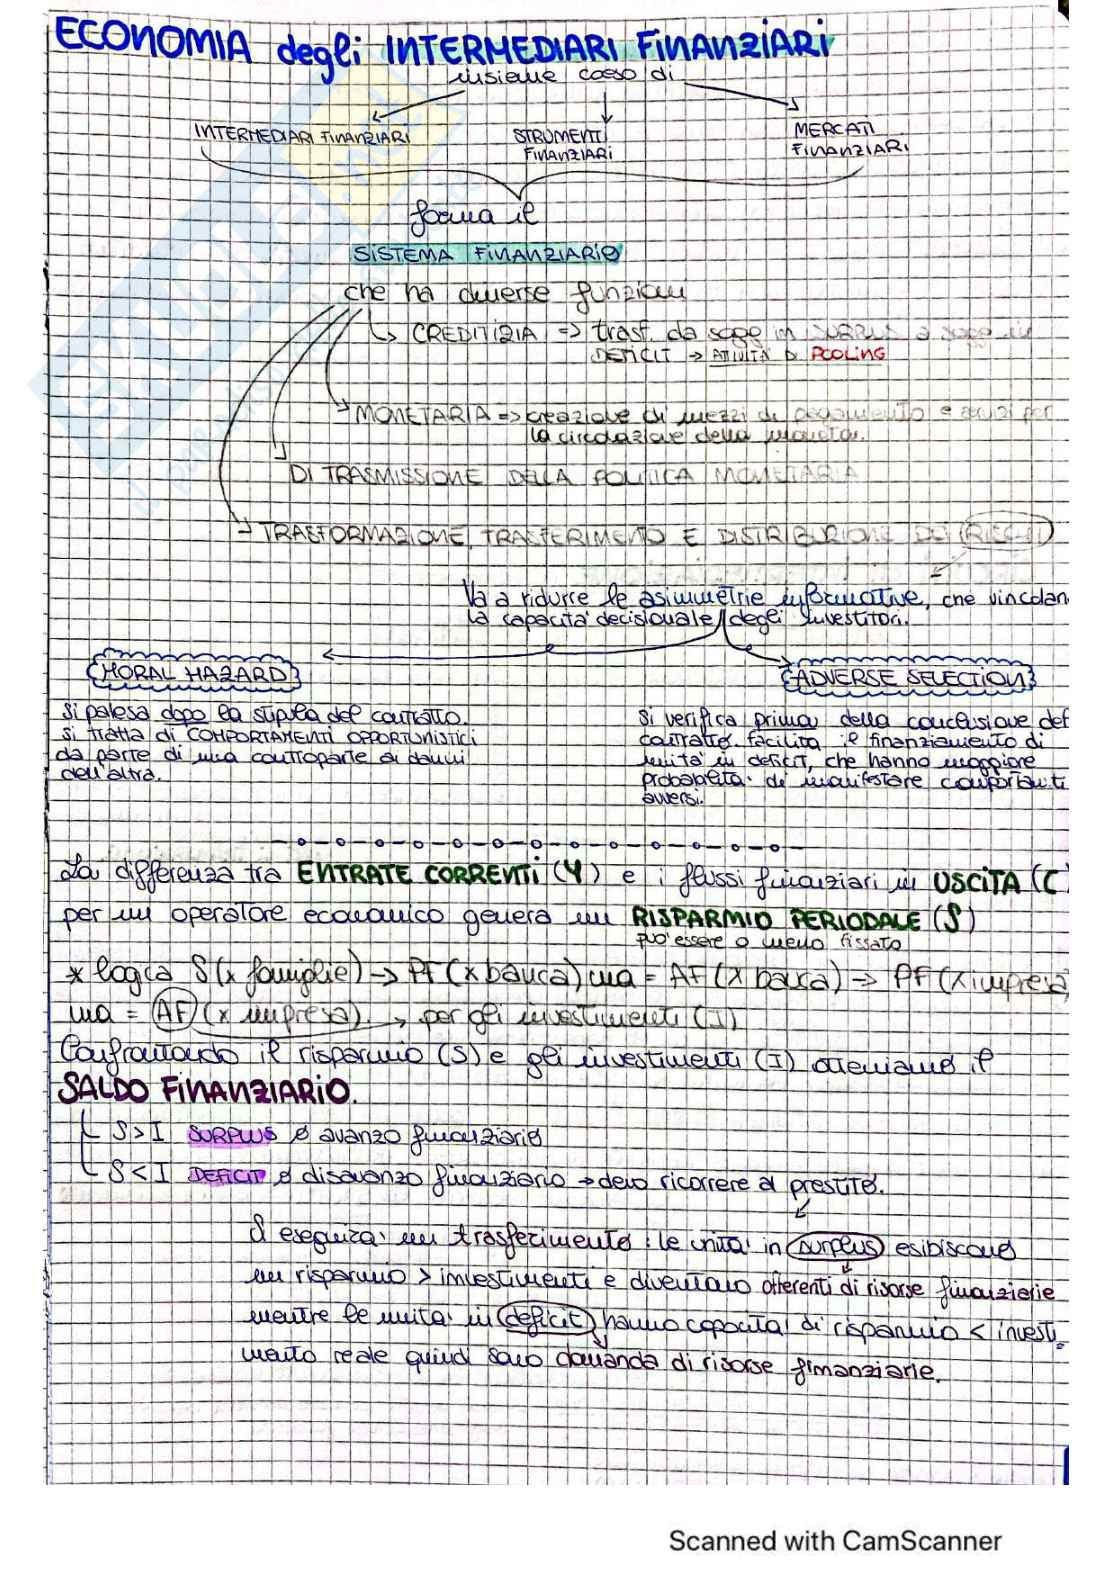 ECONOMIA degli INTERMEDIARI FINANZIARI
insieme coeso di
INTERMEDIARI FINANZIARI
STRUMENTI
FINANZIARI
MERCATI
FINANZIARI
forma il
SISTEMA FINANZIARIO
che ha diverse funzioni
CREDITIZIA => trasf. da sogg in SURPLUS a sogg in
DEFICIT → ATTIVITÀ DI POOLING
MONETARIA => creazione di mezzi di pagamento e servizi per
la circolazione della moneta.
DI TRASMISSIONE DELLA POLITICA MONETARIA
TRASFORMAZIONE, TRASFERIMENTO E DISTRIBUZIONE DEI RISCHI
Va a ridurre le asimmetrie informative, che vincolan
la capacità decisionale degli investitori.
MORAL HAZARD
ADVERSE SELECTION
Si palesa dopo la stipula del contratto.
si tratta di COMPORTAMENTI OPPORTUNISTICI
da parte di una controparte ai danni
dell'altra.
Si verifica prima della conclusione del
contratto. facilita il finanziamento di
unità in deficit, che hanno maggiore
probabilità di manifestare comportam.ti
avversi.
La differenza tra ENTRATE CORRENTI (Y) e i flussi finanziari in USCITA (C)
per un operatore economico genera un RISPARMIO PERIODALE (S)
può essere o meno fissato
* logica S (x famiglie) → PF (x banca) ma = AF (x banca) → PF (x impresa)
ma = AF (x impresa). → per gli investimenti (I)
Confrontando il risparmio (S) e gli investimenti (I) otteniamo il
SALDO FINANZIARIO.
S > I SURPLUS o avanzo finanziario
S < I DEFICIT o disavanzo finanziario → devo ricorrere a prestito.
S eseguirà un trasferimento: le unità in surplus esibiscono
un risparmio > investimenti e diventano offerenti di risorse finanziarie
mentre le unità in deficit hanno capacità di risparmio < investi
mento reale quindi sono domanda di risorse finanziarie.
Scanned with CamScanner